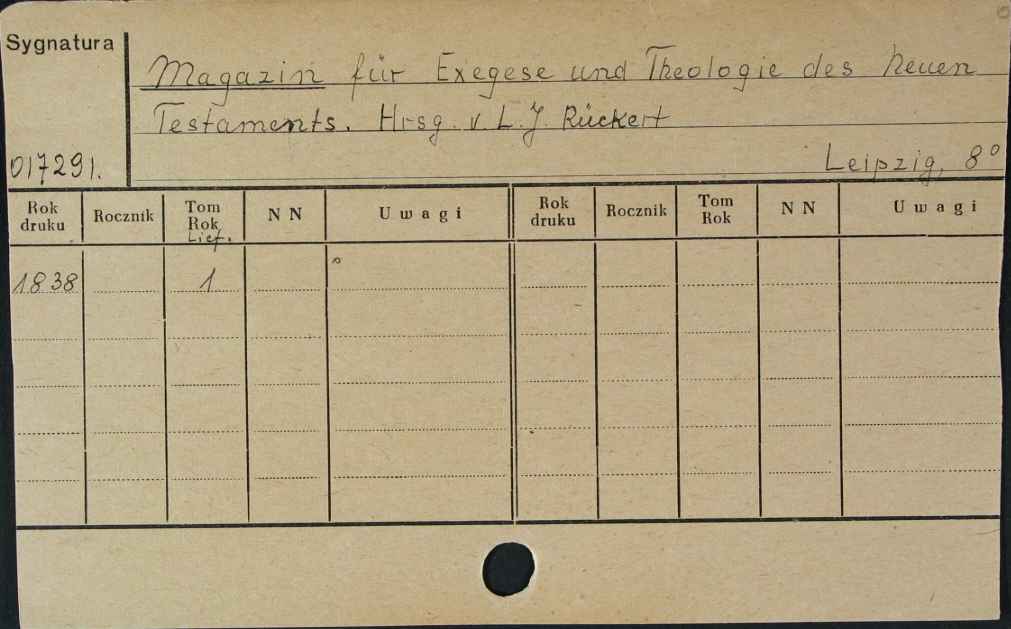 Sygnatura
Magazin für Exegese und Theologie des Neuen
Testaments. Hrsg. v. L. J. Rückert
017291.
Leipzig, 8°
Rok druku Rocznik Tom Rok Lief. N N Uwagi Rok druku Rocznik Tom Rok N N Uwagi
1838 1